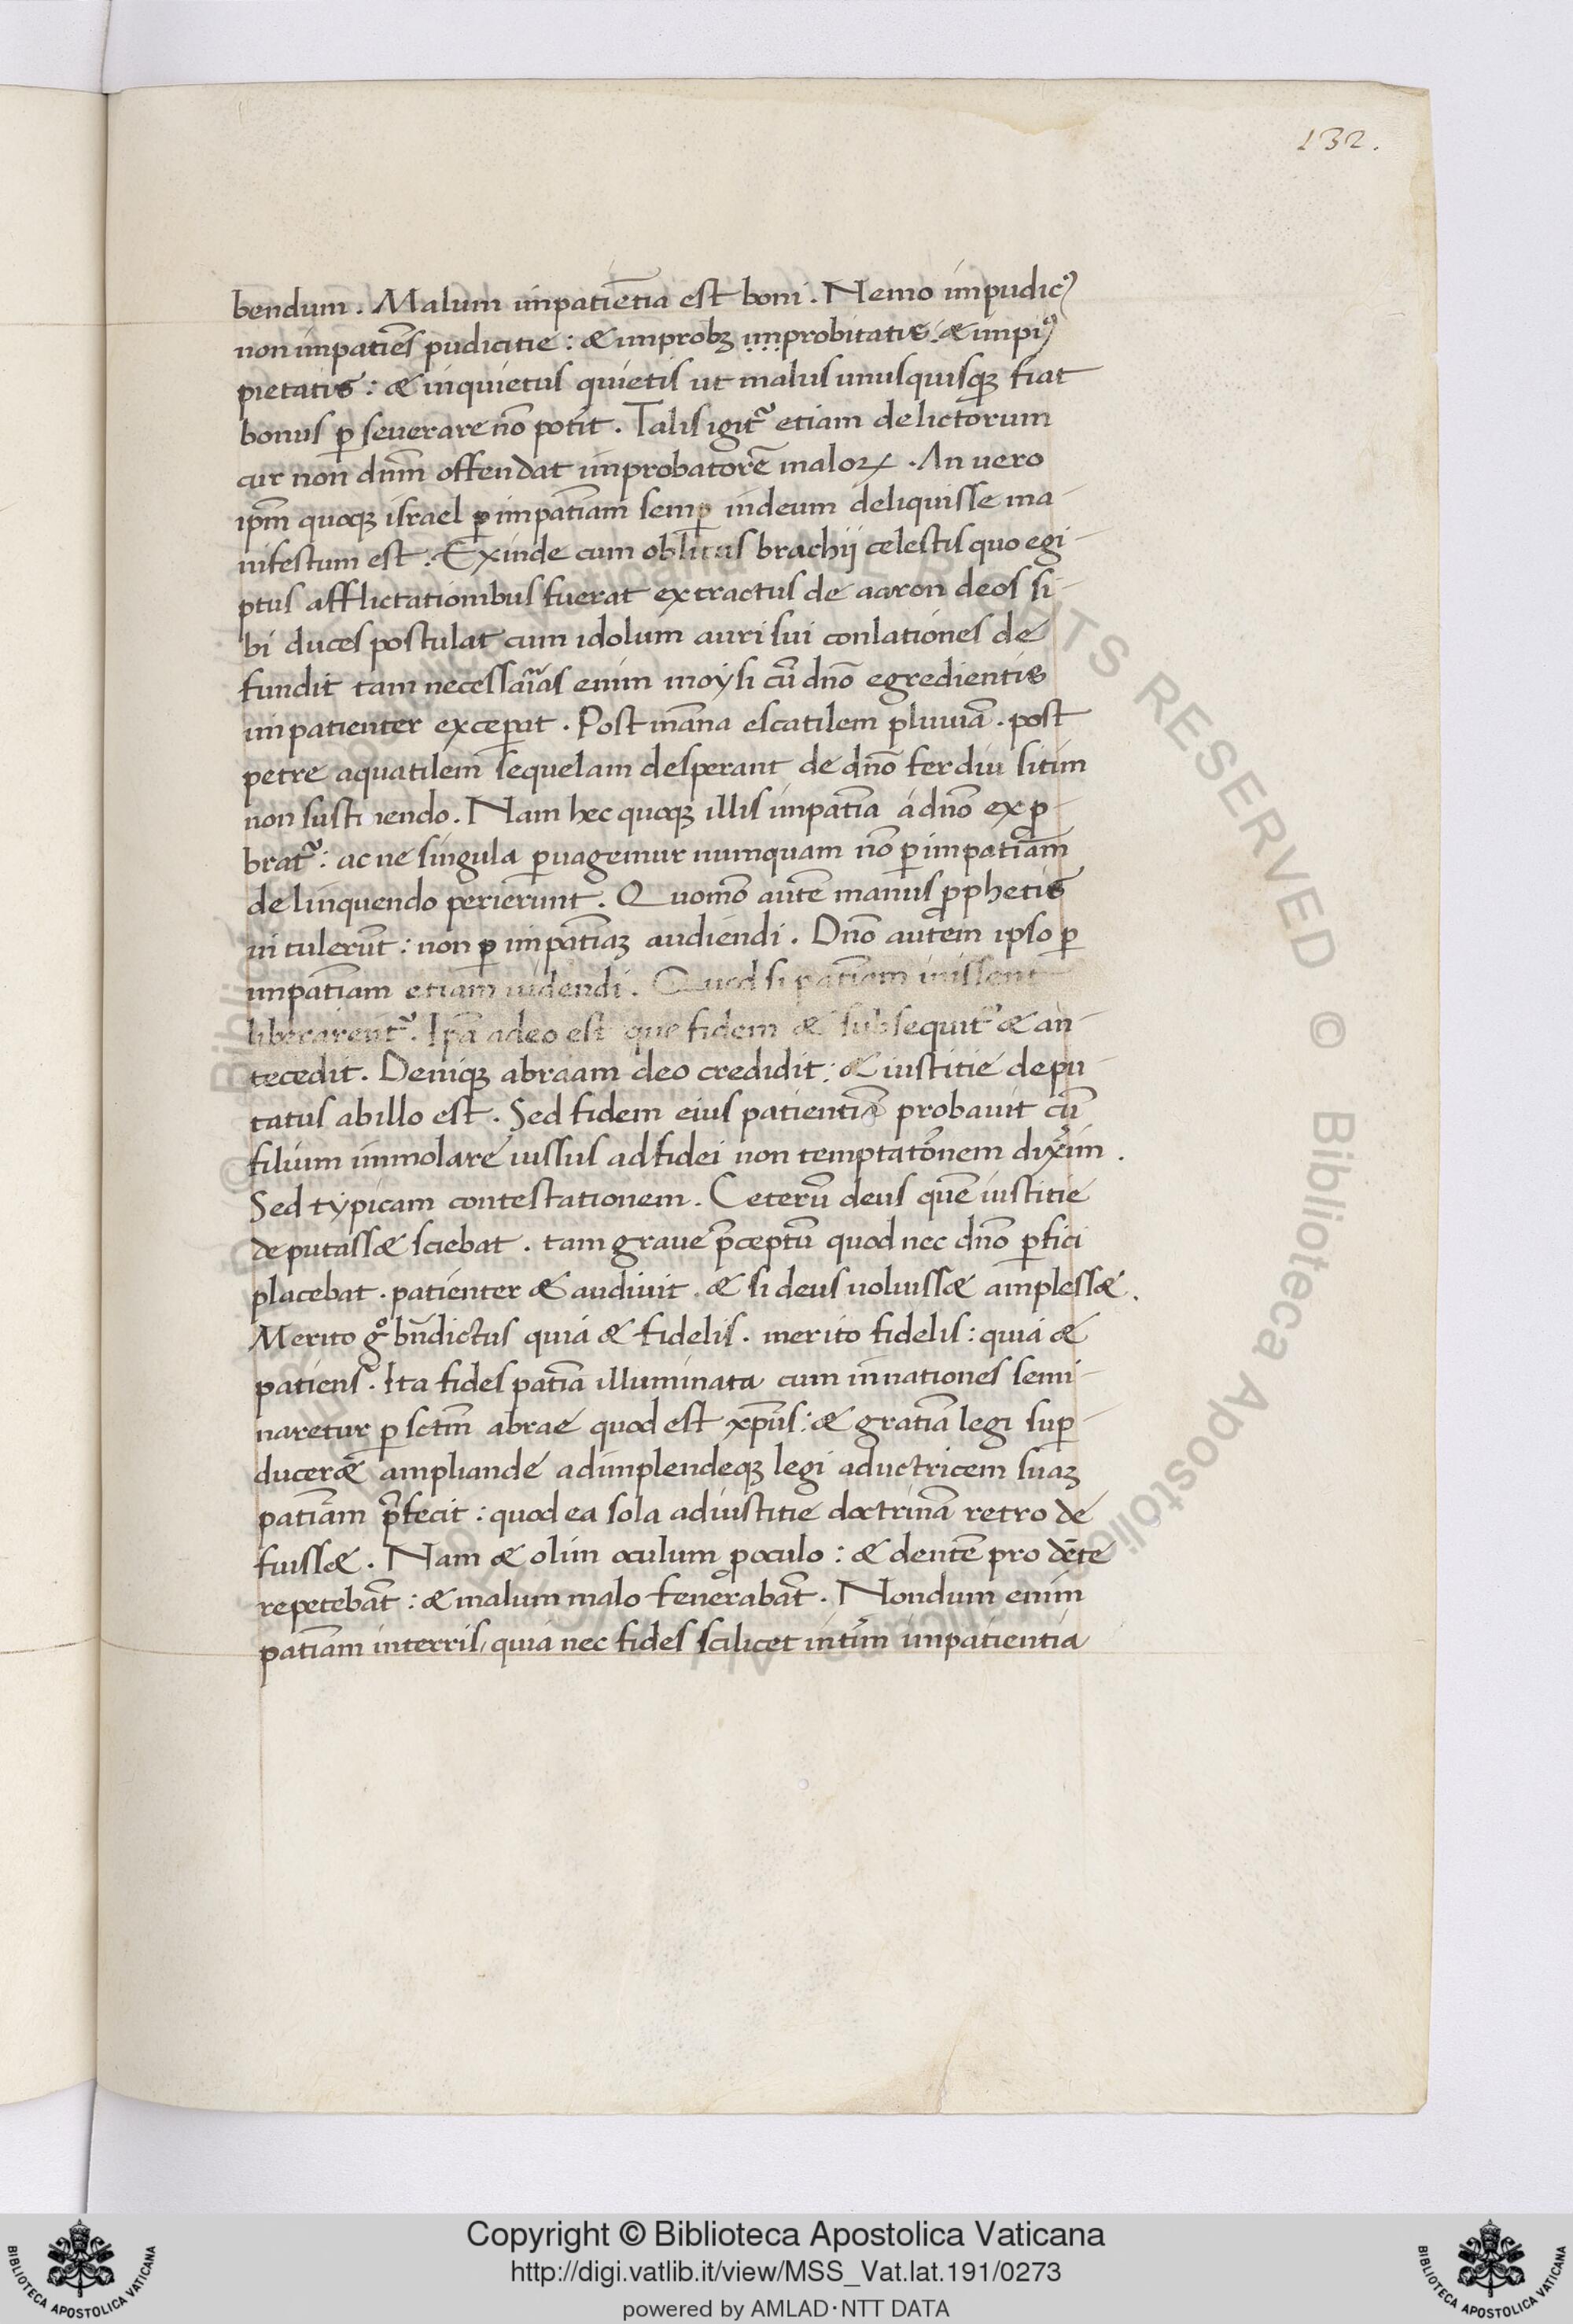 132.
bendum. Malum impatiẽtia est boni. Nemo impudicꝰ
non impatiẽs pudicitie: & improbꝫ improbitatis: & impiꝰ
pietatis: & inquietus quietis ut malus unusquisqꝫ fiat
bonus ꝑseuerare nõ potit. Talis igit᷑ etiam delictorum
cur non dnm̃ offendat improbatorẽ maloꝝ. An uero
ipm̃ quoqꝫ israel ꝑ impatiam̃ semꝑ indeum deliquisse ma-
nifestum est. Exinde cum oblitus brachij celestis quo egi-
ptus afflictationibus fuerat extractus de aaron deos si-
bi duces postulat cum idolum auri sui conlationes de
fundit tam necessaĩas enim moysi cũ dnõ egredientis
impatienter exceꝑat. Post mãna escatilem pluuiã. post
petre aquatilem sequelam desperant de dnõ ferdiu sitim
non sustinendo. Nam hec quoqꝫ illis impatia᷑ a dnõ exꝓ-
brat᷑: ac ne singula ꝑuagemur numquam nõ ꝑ impatiam̃
delinquendo perierunt. Quomõ autẽ manus ꝓphetis
in tulerũt: non ꝑ impatiaꝫ̃ audiendi. Dnõ autem ipso ꝑ
impatiam̃ etiam uidendi. Quod si patiam̃ inissent
liberarent᷑. Ipã adeo est que fidem & subsequit᷑ & an-
tecedit. Deniqꝫ abraam deo credidit: & iustitie depu-
tatus abillo est. Sed fidem eius patientiã probauit cũ
filium immolare iussus ad fidei non temptatõnem dix̃im.
Sed typicam contestationem. Ceterũ deus quẽ iustitie
deputass& sciebat. tam graue p̃ceptũ quod nec dnõ ꝑfici
placebat. patienter & audiuit. & si deus uoluiss& impless&.
Merito gͦ bñdictus quia & fidelis. merito fidelis: quia &
patiens. Ita fides patiã illuminata cum in nationes semi-
naretur ꝑ sctm̃ abrae quod est xp̃us: & gratiã legi suꝑ-
ducer& ampliande adimplendeqꝫ legi adiutricem suaꝫ
patiam̃ p̃fecit: quod ea sola adiustitie doctrinã retro de
fuiss&. Nam & olim oculum ꝓ oculo: & dentẽ pro dẽte
repetebãt: & malum malo fenerabãt. Nondum enim
patiam̃ interris, quia nec fides scilicet intĩm impatientia
Copyright © Biblioteca Apostolica Vaticana
http://digi.vatlib.it/view/MSS_Vat.lat.191/0273
powered by AMLAD·NTT DATA
BIBLIOTECA APOSTOLICA VATICANA
BIBLIOTECA APOSTOLICA VATICANA